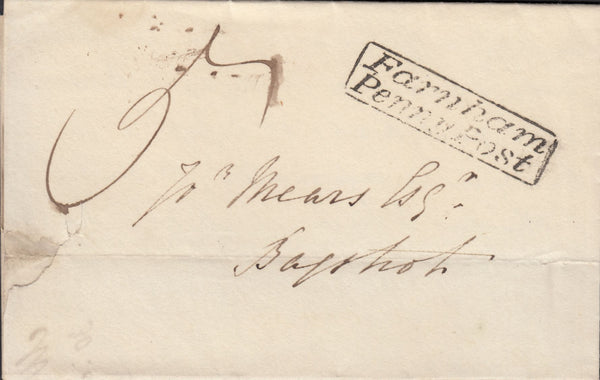 Farnham
Penny Post
Mears Esqr.
Bagshot